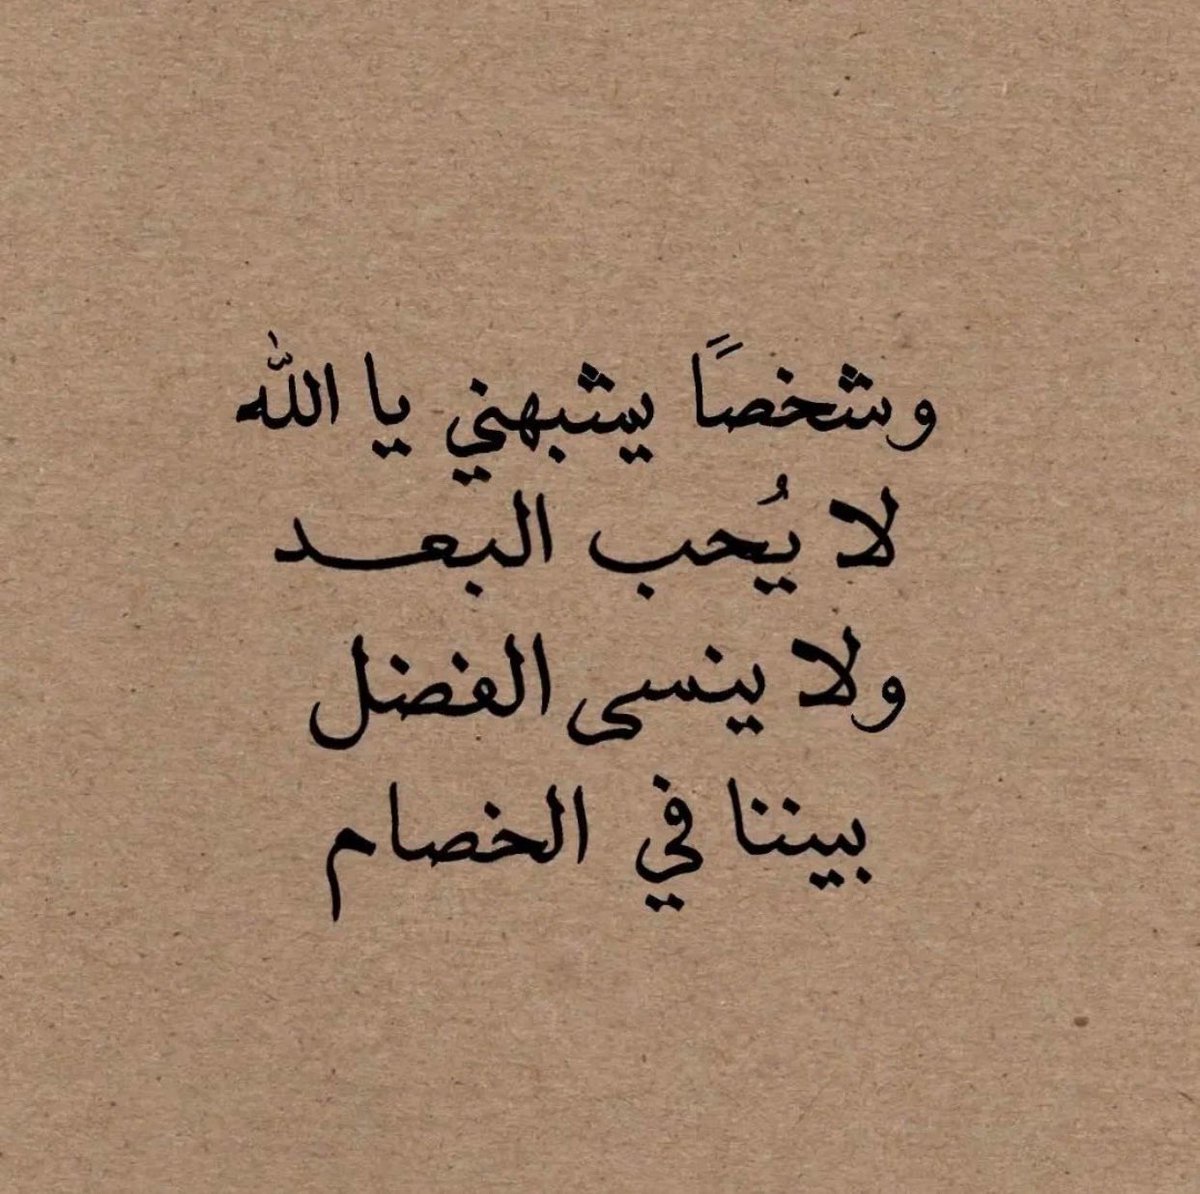 وشخصًا يشبهني يا اللّٰه
لا يُحب البعـــد
ولا ينسى الفضل
بيننا في الخصام